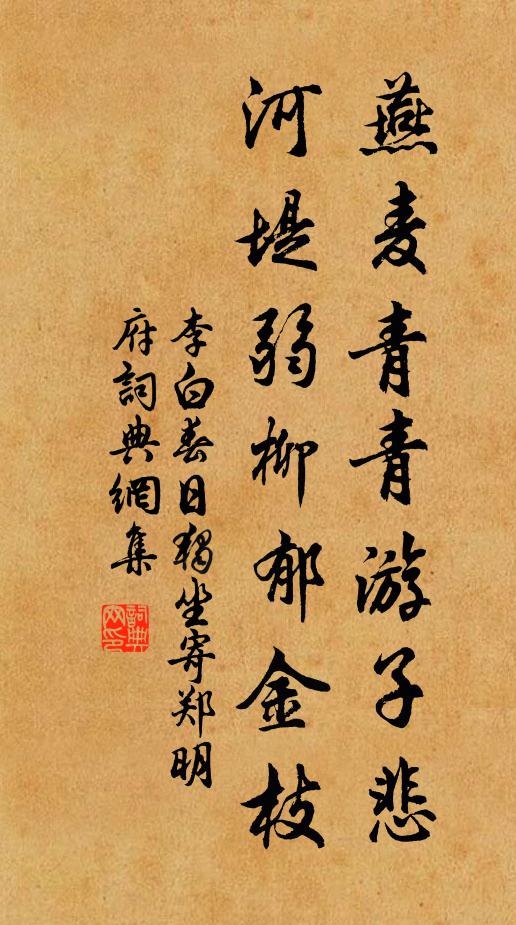 燕麦青青游子悲
河堤弱柳郁金枝
李白春日獨坐寄郑明
府詞典網集
詞典
網印